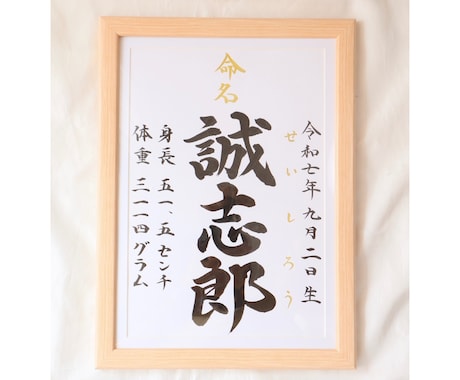 命名
令和七年九月二日生
せいしろう
誠志郎
身長 五一、五センチ
体重 三一一四グラム